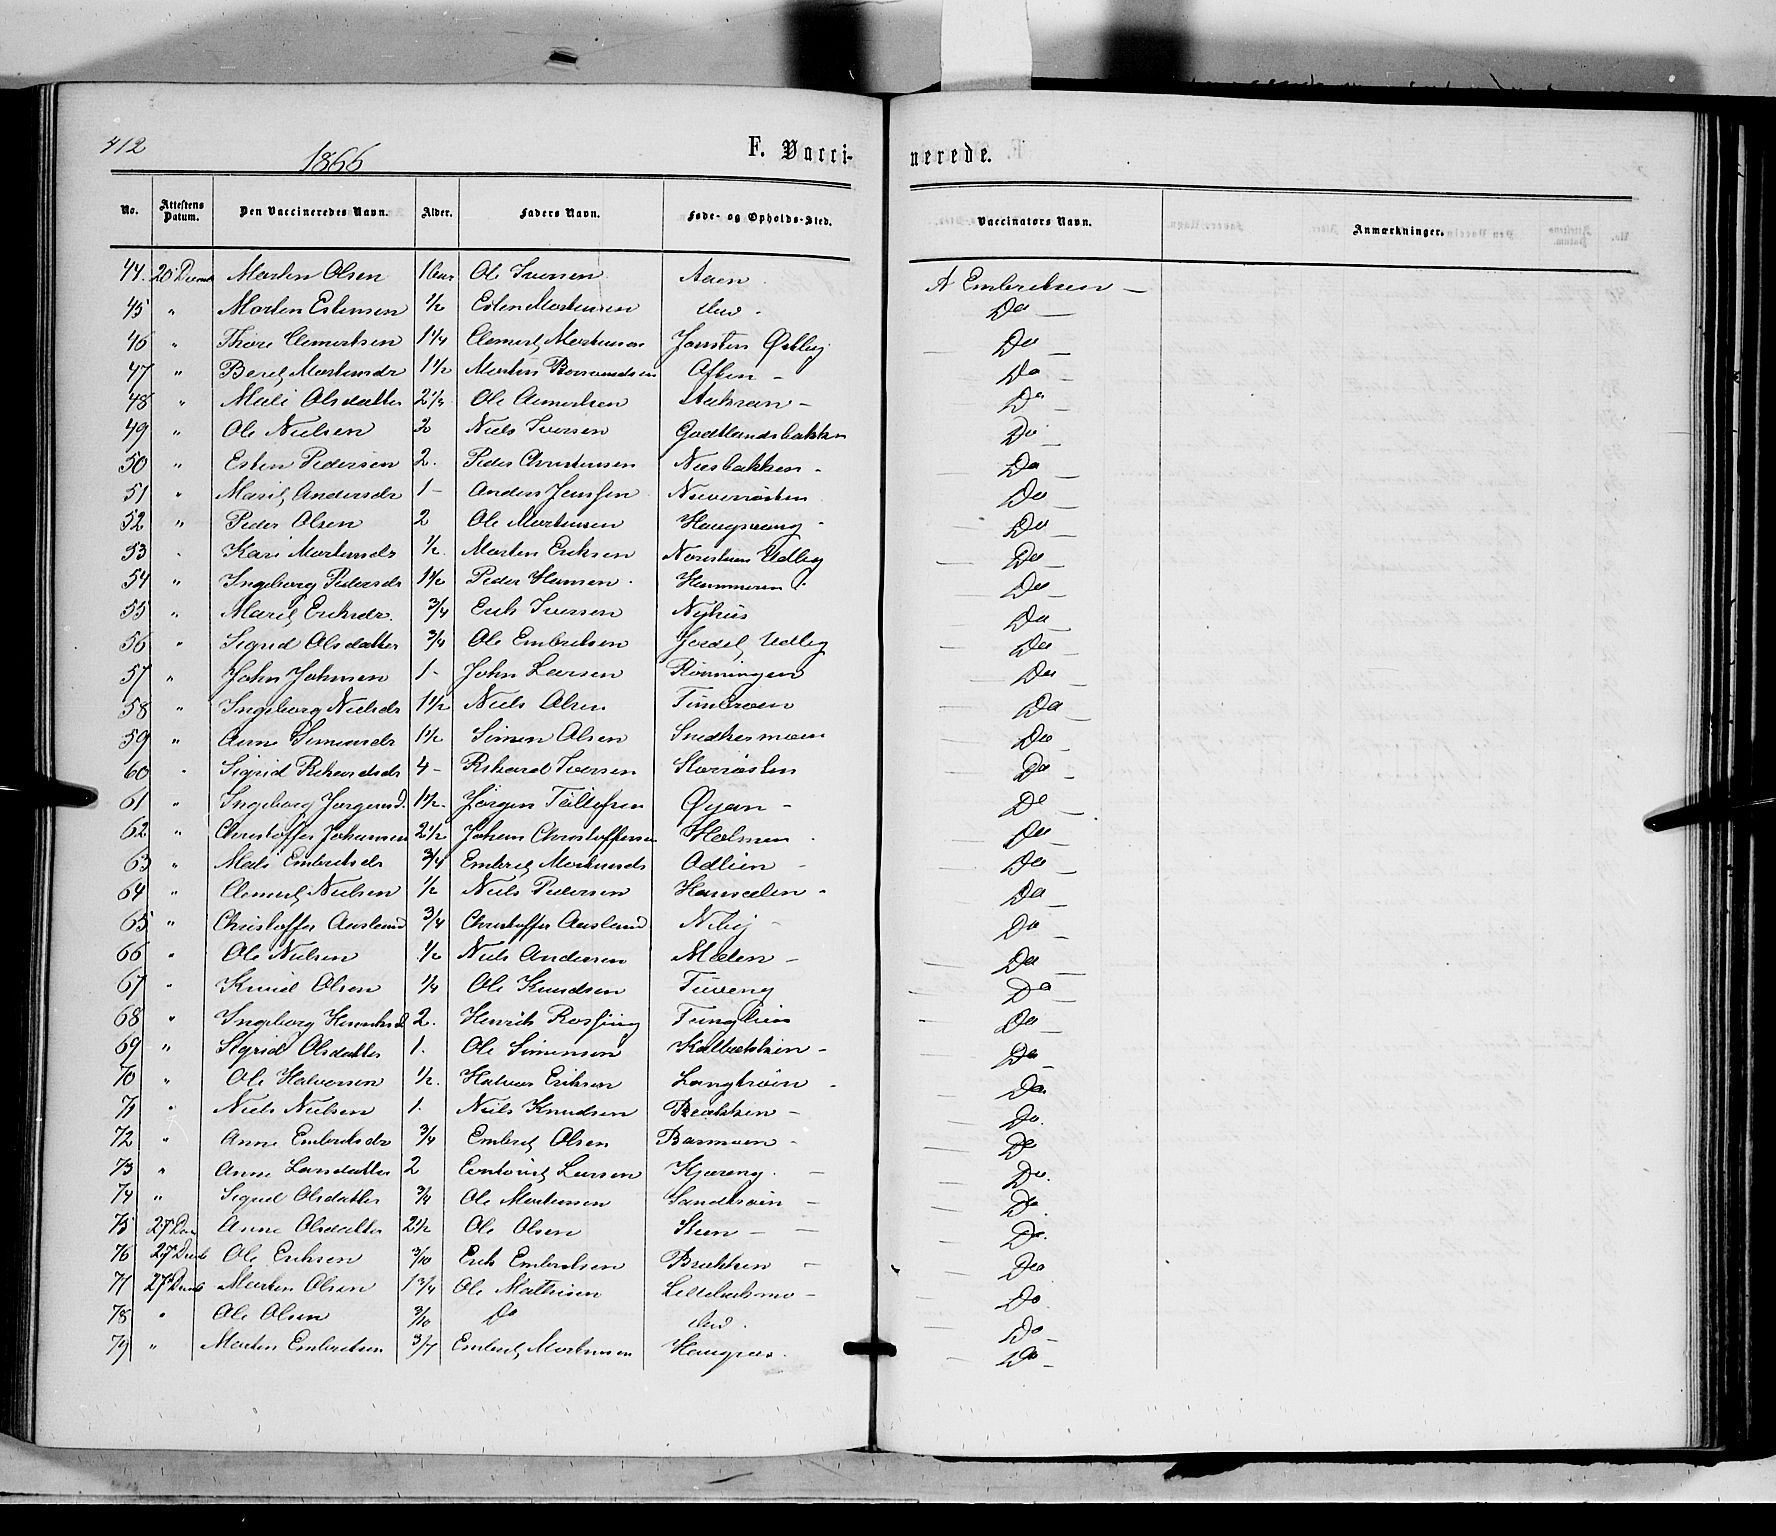 412
1866
F. Vacci-
nerede.
No. Attestens Datum. Den Vaccineredes Navn. Alder. Faders Navn. Føde- og Opholds-Sted. Vaccinators Navn. Anmærkninger.
44. 20 Decemb Morten Olsen 1 aar Ole Iversen Aaen A Embretsen —
45 " Morten Estensen 1/2 Esten Mortensen ibid. Do —
46 " Thore Clemetsen 1 1/4 Clemet Mortensen Østby Do —
47 " Beret Mortensdr 1 1/2 Morten — Do —
48 " Mali Olsdatter 2 1/2 Ole — Do —
49 " Ole Nielsen Niels Iversen Godtlandsbakken Do —
50 " Esten Pedersen 2. Peder Christensen Næsbakken - Do —
51 " Marit Andersdr 1 - Anders Jensen Do —
52 " Peder Olsen 2 Ole Mortensen Haugvang Do —
53 " Kari Mortensdr 1/2 Morten Eriksen Udlig Do —
54 " Ingeborg Pedersdr 1 1/2 Peder Hansen. Hammeren Do —
55 " Marit Eriksdr. 3/4 Erik Iversen Nyhus Do —
56 " Sigrid Olsdatter 3/4 Ole Embretsen Jordet Udlig Do —
57 " John Johnsen 1 - John Larsen Rønningen Do —
58 " Ingeborg Nielsdr 1 1/2 Niels Olsen Do —
59 " Anne Simensdr 1 1/2 Simen Olsen Snedkermoen Do —
60 " Sigrid 4 - Iversen Storrøsten Do —
61 " Ingeborg Jørgensd. 1 1/2. Jørgen Tollefsen Øyan - Do —
62 " Christoffer Johansen 2 1/2 Johan Christoffersen Holmen Do —
63 " Mali Embretsdr 3/4 Embret Mortensen Odlien - Do —
64 " Clemet Nielsen 1/2 Niels Pedersen - Do —
65 " Christoffer Aaslund 3/4 Christoffer Aaslund Neby - Do —
66 " Ole Nielsen 1/2 Niels Andersen Moen - Do —
67 " Knud Olsen 1/4 Ole Knudsen Do —
68 " Ingeborg Henriksd 2. Henrik Do —
69 " Sigrid Olsdatter 1. Ole Simensen Kalbækken - Do —
70 " Ole Halvorsen 1/2. Halvor Eriksen Langtrøin - Do
71 " Niels Nielsen 1. Niels Knudsen Bækken - Do.
72 " Anne Embretsdr 3/4 Embret Olsen Barmoen - Do
73 " Anne Larsdatter 2 Larsen Kjæreng. — Do.
74 " Sigrid Olsdatter 3/4 Ole Mortensen Sandtrøin — Do.
75 27 Dec Anne Olsdatter 2 1/2 Ole Olsen Steen — Do.
76 27 Decb Ole Eriksen 3/10 Erik Embretsen Brækken — Do
77 27 Decb Morten Olsen 1 3/4 Ole Mathisen Lillebækmo — Do.
78 " Ole Olsen 3/10 Do ibid. Do —
79 " Morten Embretsen 3/4 Embret Mortensen Do —